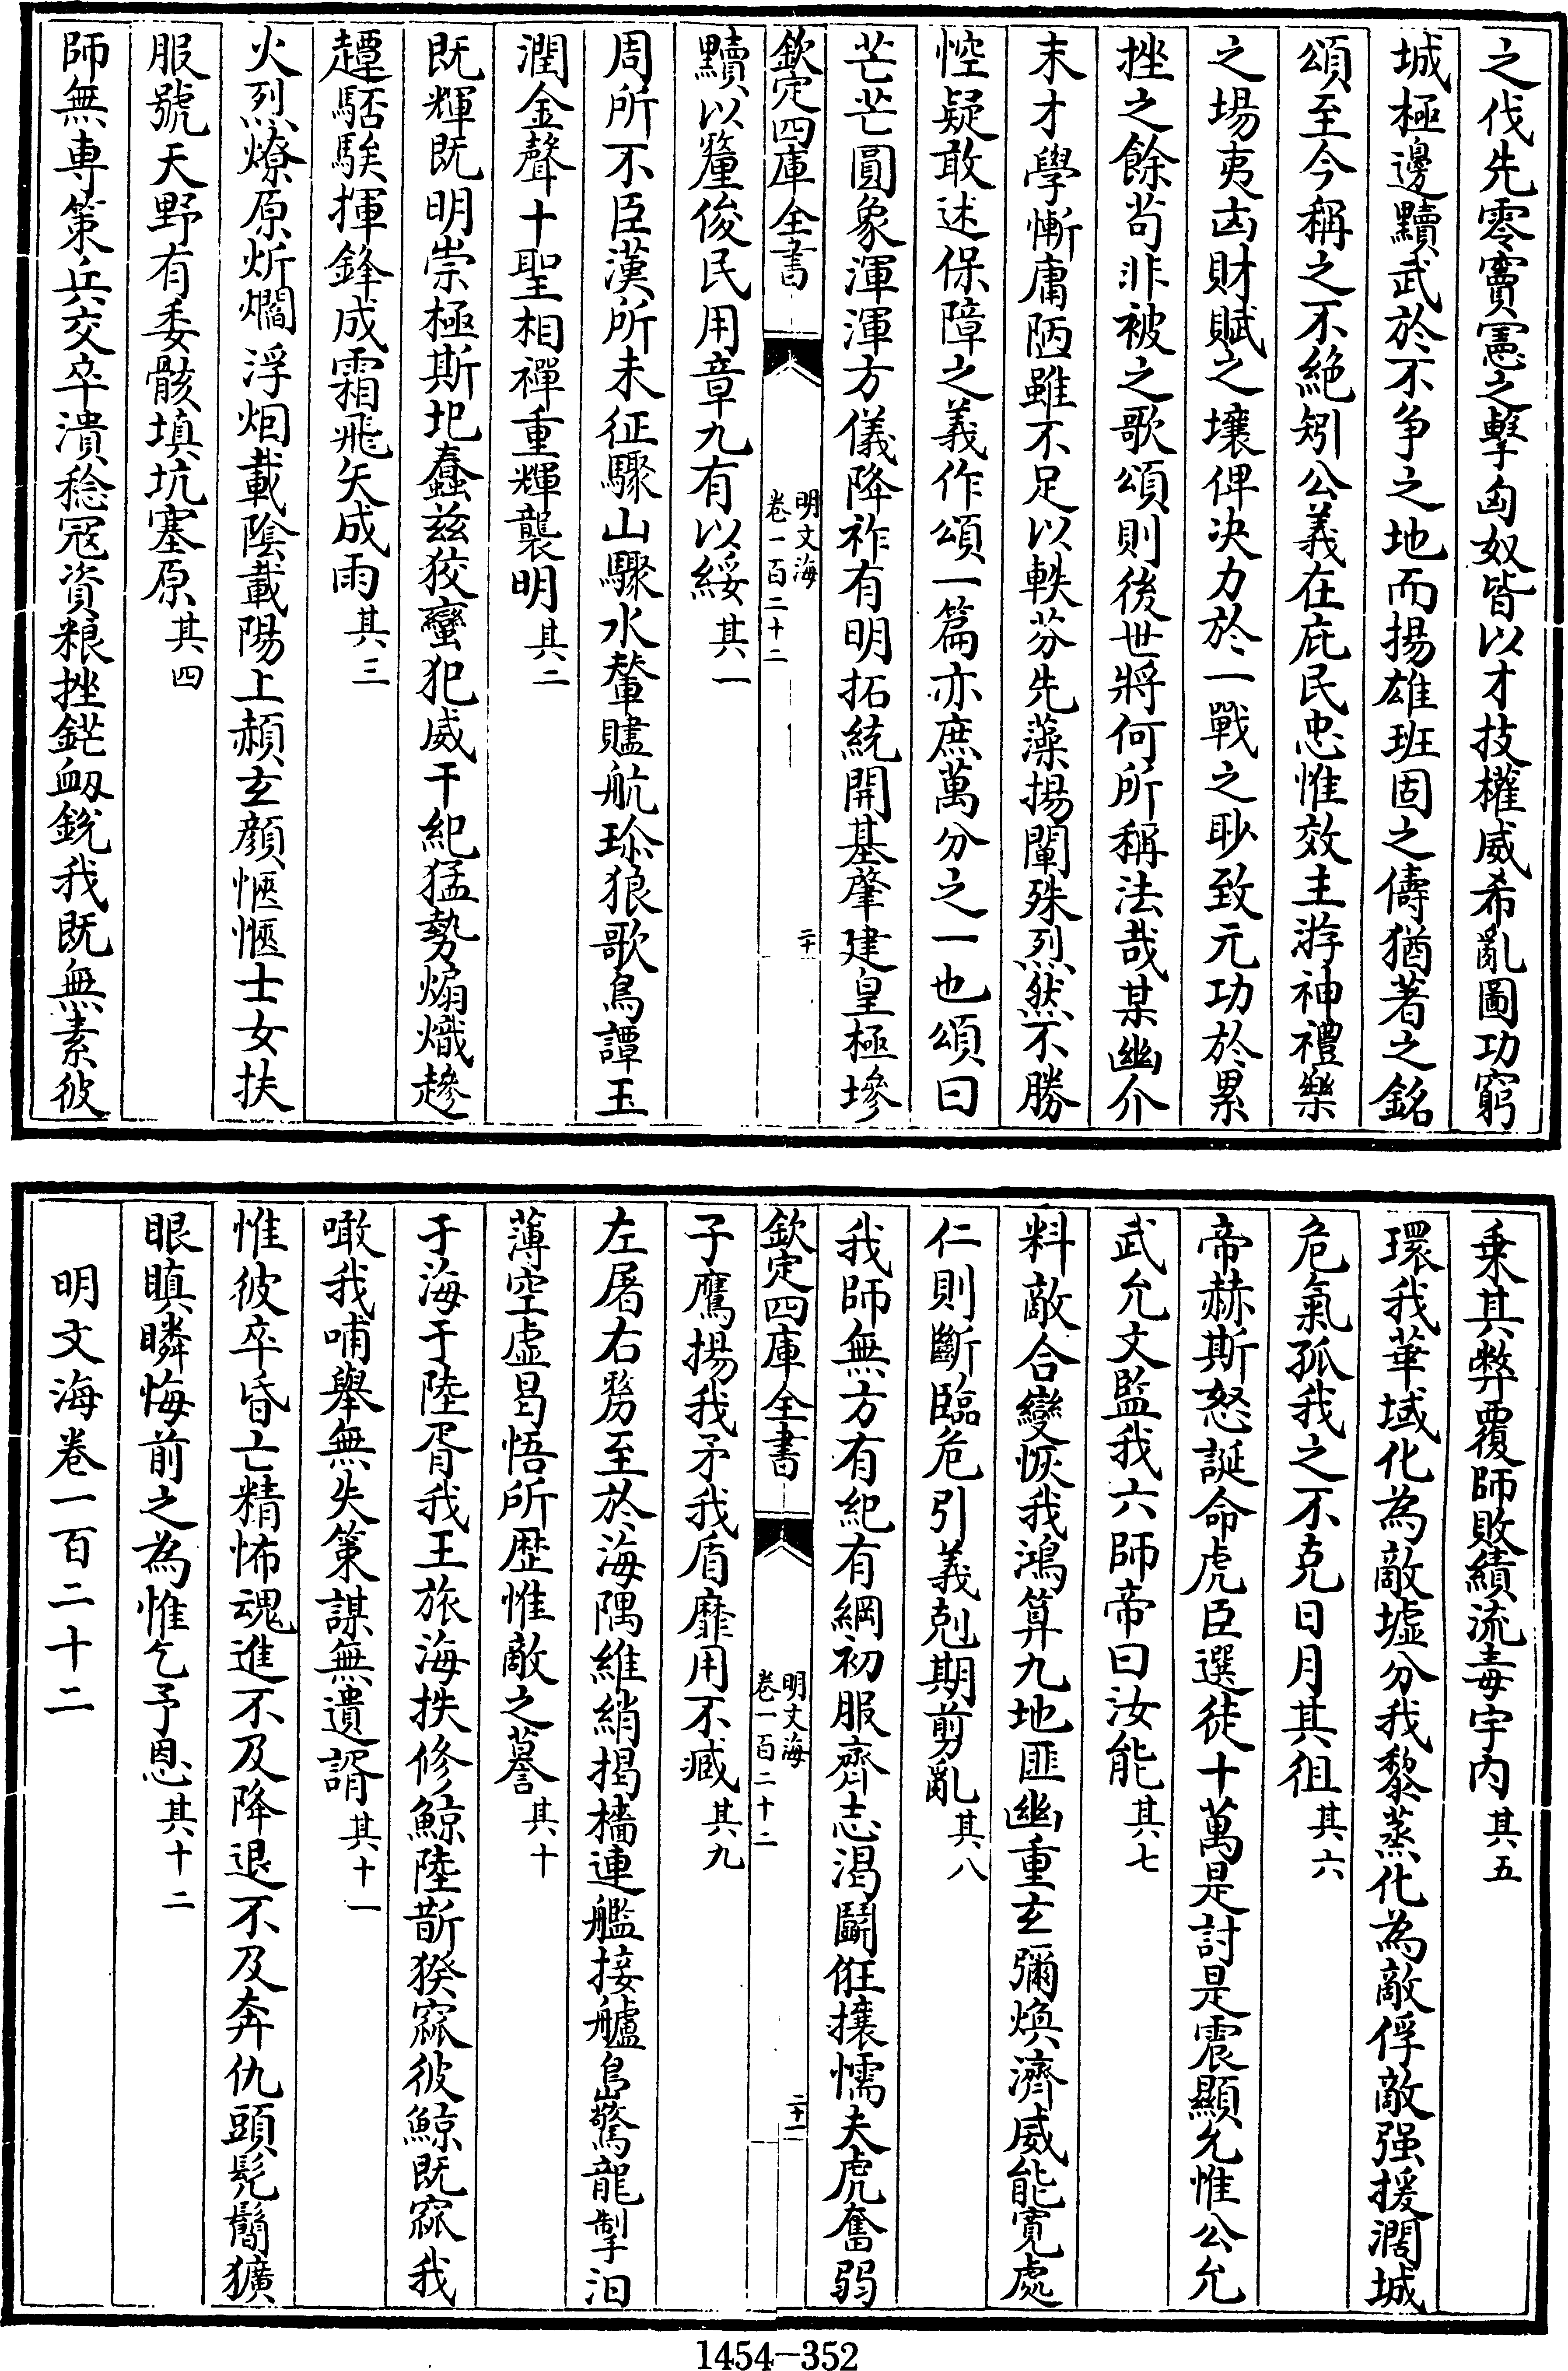 之伐先零竇憲之擊匈奴皆以才技權威希亂圖功窮
城極邊黷武於不争之地而揚雄班固之儔猶著之銘
頌至今稱之不絶矧公義在庇民忠惟效主游神禮樂
之場夷凶財賦之壤俾决力於一戰之眇致元功於累
挫之餘茍非被之歌頌則後世將何所稱法哉某幽介
末才學慚庸陋雖不足以軼芬先藻揚闡殊烈然不勝
悾疑敢述保障之義作頌一篇亦庶萬分之一也頌曰
芒芒圓象渾渾方儀降祚有明拓統開基肇建皇極墋
欽定四庫全書
明文海
卷一百二十二
二十
黷以釐俊民用章九有以綏其一
周所不臣漢所未征驟山驟水輦賮航琛狼歌鳥譚玉
潤金聲十聖相禪重輝襲明其二
既輝既明崇極斯圮蠢兹狡蠻犯威干紀猛勢煽熾趁
趯駓騃揮鋒成霜飛矢成雨其三
火烈燎原炘爓浮烟載陰載陽上赬玄顔愝愝士女扶
服號天野有委骸填坑塞原其四
師無専策兵交卒潰稔冦資粮挫鋩衂銳我既無素彼
乗其弊覆師敗績流毒宇内其五
環我華域化為敵墟分我黎蒸化為敵俘敵强援濶城
危氣孤我之不克日月其徂其六
帝赫斯怒誕命虎臣選徒十萬是討是震顯允惟公允
武允文監我六師帝曰汝能其七
料敵合變恢我鴻算九地匪幽重玄彌煥濟威能寛處
仁則斷臨危引義剋期剪亂其八
我師無方有紀有綱初服齊志渴鬭俇攘懦夫虎奮弱
欽定四庫全書
明文海
卷一百二十二
二十一
子鷹揚我矛我盾靡用不臧其九
左屠右剹至於海隅維綃揭檣連艦接艫島驚龍掣汨
薄空虚曷悟所歴惟敵之謩其十
于海于陸胥我王旅海抶修鯨陸斮猰㺄彼鯨既㺄我
噉我哺舉無失策謀無遺諝其十一
惟彼卒昏亡精怖魂進不及降退不及奔仇頭髠鬜獷
眼瞋瞵悔前之為惟乞予恩其十二
明文海卷一百二十二
1454-352